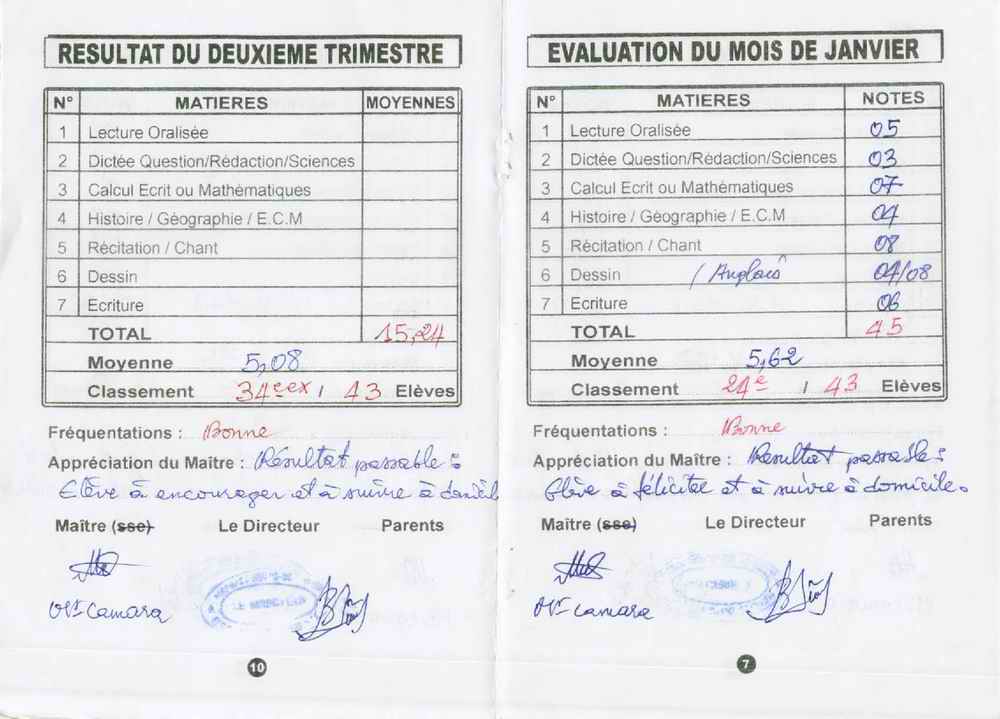 RESULTAT DU DEUXIEME TRIMESTRE
N° MATIERES MOYENNES
1 Lecture Oralisée
2 Dictée Question/Rédaction/Sciences
3 Calcul Ecrit ou Mathématiques
4 Histoire / Géographie / E.C.M
5 Récitation / Chant
6 Dessin
7 Ecriture
TOTAL 15,24
Moyenne 5,08
Classement 34eex / 43 Elèves
Fréquentations : Bonne
Appréciation du Maître : Résultat passable :
Elève à encourager et à suivre à
Maître (sse) Le Directeur Parents
Mr Camara
LE DIRECTEUR
10
EVALUATION DU MOIS DE JANVIER
N° MATIERES NOTES
1 Lecture Oralisée 05
2 Dictée Question/Rédaction/Sciences 03
3 Calcul Ecrit ou Mathématiques 07
4 Histoire / Géographie / E.C.M 04
5 Récitation / Chant 08
6 Dessin / Anglais 04/08
7 Ecriture 06
TOTAL 45
Moyenne 5,62
Classement 24e / 43 Elèves
Fréquentations : Bonne
Appréciation du Maître : Résultat passable :
Elève à féliciter et à suivre à domicile.
Maître (sse) Le Directeur Parents
Mr Camara
7